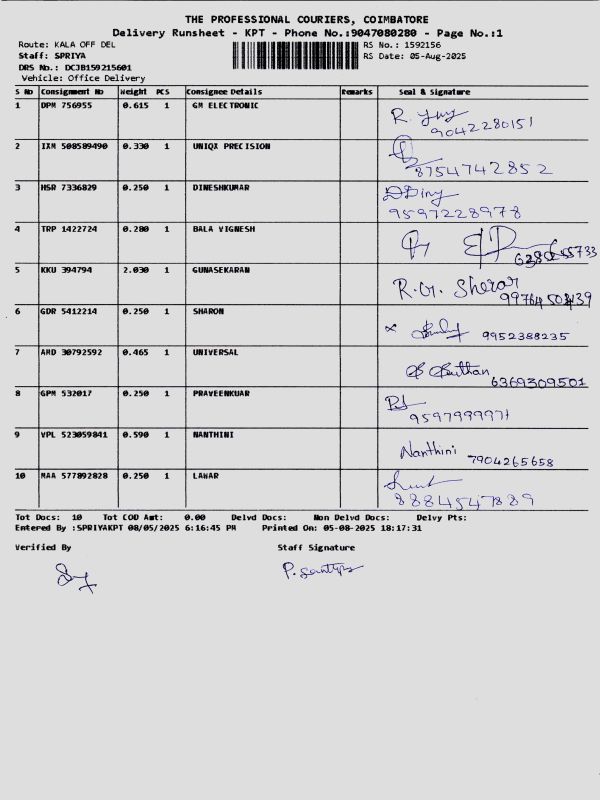 THE PROFESSIONAL COURIERS, COIMBATORE
Delivery Runsheet - KPT - Phone No.:9047080280 - Page No.:1
Route: KALA OFF DEL RS No.: 1592156
Staff: SPRIYA RS Date: 05-Aug-2025
DRS No.: DCJB159215601
Vehicle: Office Delivery
S No Consignment No Weight PCS Consignee Details Remarks Seal & Signature
1 DPM 756955 0.615 1 GM ELECTRONIC
9042280151
2 IXM 508589490 0.330 1 UNIQX PRECISION
8754742852
3 HSR 7336829 0.250 1 DINESHKUMAR
9597228978
4 TRP 1422724 0.280 1 BALA VIGNESH
5 KKU 394794 2.030 1 GUNASEKARAN
R.G.
6 GDR 5412214 0.250 1 SHARON
9952388235
7 AMD 30792592 0.465 1 UNIVERSAL
6369309501
8 GPM 532017 0.250 1 PRAVEENKUAR
9 VPL 523059841 0.590 1 NANTHINI
Nanthini 7904265658
10 MAA 577892828 0.250 1 LAWAR
8884547889
Tot Docs: 10 Tot COD Amt: 0.00 Delvd Docs: Non Delvd Docs: Delvy Pts:
Entered By :SPRIYAKPT 08/05/2025 6:16:45 PM Printed On: 05-08-2025 18:17:31
Verified By Staff Signature